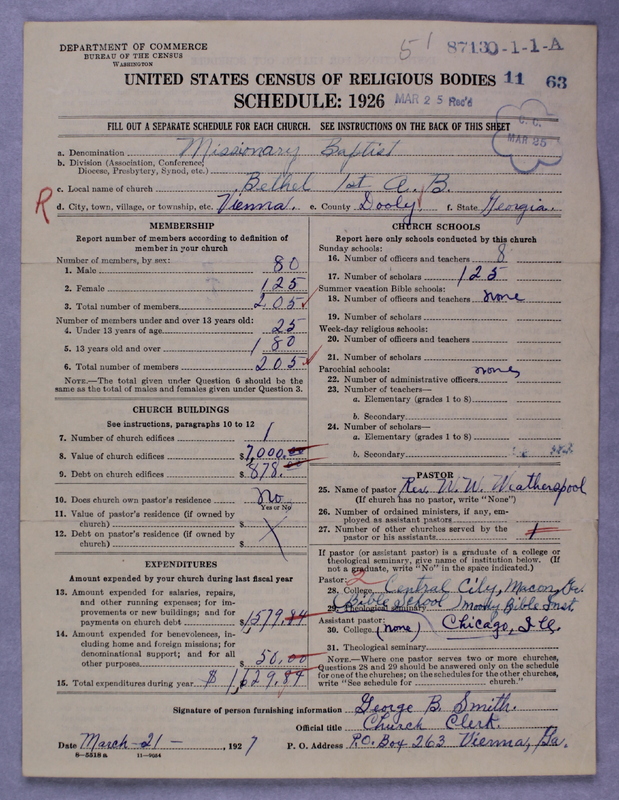 DEPARTMENT OF COMMERCE
BUREAU OF THE CENSUS
WASHINGTON
51 87130-1-1-A
UNITED STATES CENSUS OF RELIGIOUS BODIES 11 63
SCHEDULE: 1926 MAR 25 Rec'd
C. C.
MAR 25
FILL OUT A SEPARATE SCHEDULE FOR EACH CHURCH. SEE INSTRUCTIONS ON THE BACK OF THIS SHEET
a. Denomination Missionary Baptist
b. Division (Association, Conference, Diocese, Presbytery, Synod, etc.)
c. Local name of church Bethel 1st A. B.
R d. City, town, village, or township, etc. Vienna. e. County Dooly f. State Georgia.
MEMBERSHIP
Report number of members according to definition of
member in your church
Number of members, by sex:
1. Male 80
2. Female 125
3. Total number of members 205
Number of members under and over 13 years old:
4. Under 13 years of age 25
5. 13 years old and over 180
6. Total number of members 205
NOTE.—The total given under Question 6 should be the
same as the total of males and females given under Question 3.
CHURCH BUILDINGS
See instructions, paragraphs 10 to 12
7. Number of church edifices 1
8. Value of church edifices $7,000.00
9. Debt on church edifices $878.00
10. Does church own pastor's residence No
Yes or No
11. Value of pastor's residence (if owned by
church) $
12. Debt on pastor's residence (if owned by
church) $
EXPENDITURES
Amount expended by your church during last fiscal year
13. Amount expended for salaries, repairs,
and other running expenses; for im-
provements or new building; and for
payments on church debt $1,579.84
14. Amount expended for benevolences, in-
cluding home and foreign missions; for
denominational support; and for all
other purposes 50.00
15. Total expenditures during year $1,629.84
CHURCH SCHOOLS
Report here only schools conducted by this church
Sunday schools:
16. Number of officers and teachers 8
17. Number of scholars 125
Summer vacation Bible schools:
18. Number of officers and teachers none
19. Number of scholars
Week-day religious schools:
20. Number of officers and teachers
21. Number of scholars
Parochial schools: none
22. Number of administrative officers
23. Number of teachers—
a. Elementary (grades 1 to 8)
b. Secondary
24. Number of scholars—
a. Elementary (grades 1 to 8)
b. Secondary
PASTOR
25. Name of pastor Rev. W. W. Weatherspool
(If church has no pastor, write "None")
26. Number of ordained ministers, if any, em-
ployed as assistant pastors
27. Number of other churches served by the
pastor or his assistants 1
If pastor (or assistant pastor) is a graduate of a college or
theological seminary, give name of institution below. (If
not a graduate, write "No" in the space indicated.)
Pastor: 2
28. College Central City, Macon, Ga.
29. Theological seminary (Bible School) Moody Bible Inst.
Assistant pastor:
30. College (none) Chicago, Ill.
31. Theological seminary
NOTE.—Where one pastor serves two or more churches,
Questions 28 and 29 should be answered only on the schedule
for one of the churches; on the schedules for the other churches,
write "See schedule for church."
Signature of person furnishing information George B. Smith.
Official title Church Clerk.
Date March - 21 - , 1927 P. O. Address P.O. Box 263 Vienna, Ga.
8—5518a 11—9054